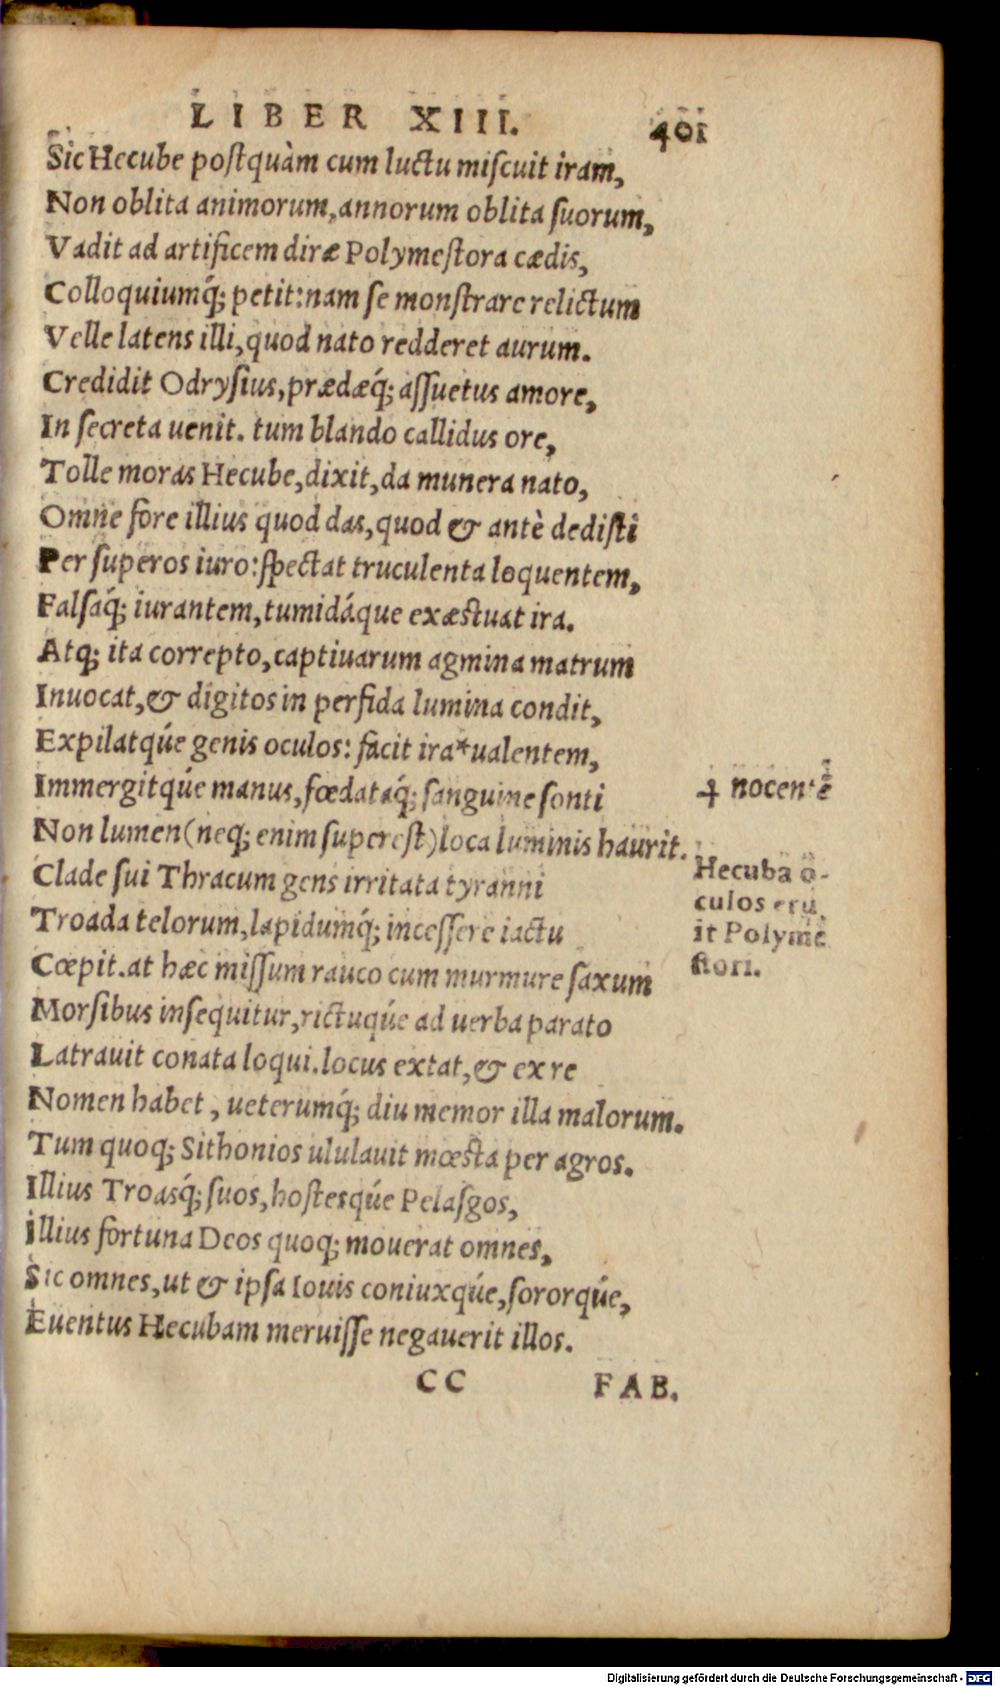 LIBER XIII. 401
Sic Hecube poſtquàm cum luctu miſcuit iram,
Non oblita animorum, annorum oblita ſuorum,
Vadit ad artificem diræ Polymeſtora cædis,
Colloquiumq́; petit: nam ſe monſtrare relictum
Velle latens illi, quod nato redderet aurum.
Credidit Odryſius, prædæq́; aſſuetus amore,
In ſecreta uenit. tum blando callidus ore,
Tolle moras Hecube, dixit, da munera nato,
Omne fore illius quod das, quod & antè dediſti
Per ſuperos iuro: ſpectat truculenta loquentem,
Falſaq́; iurantem, tumidáque exæſtuat ira.
Atq; ita correpto, captiuarum agmina matrum
Inuocat, & digitos in perfida lumina condit,
Expilatqúe genis oculos: facit ira*ualentem,
Immergitqúe manus, fœdataq́; ſanguine ſonti
Non lumen (neq; enim ſupereſt) loca luminis haurit.
Clade ſui Thracum gens irritata tyranni
Troada telorum, lapidumq́; inceſſere iactu
Cœpit. at hæc miſſum rauco cum murmure ſaxum
Morſibus inſequitur, rictuqúe ad uerba parato
Latrauit conata loqui. locus extat, & ex re
Nomen habet, ueterumq́; diu memor illa malorum.
Tum quoq; Sithonios ululauit mœſta per agros.
Illius Troasq́; ſuos, hoſtesqúe Pelaſgos,
Illius fortuna Deos quoq; mouerat omnes,
Sic omnes, ut & ipſa Iouis coniuxqúe, ſororqúe,
Euentus Hecubam meruiſſe negauerit illos.
CC FAB.
⁊ nocentẽ
Hecuba o-
culos eru
it Polyme
ſtori.
Digitalisierung gefördert durch die Deutsche Forschungsgemeinschaft - DFG